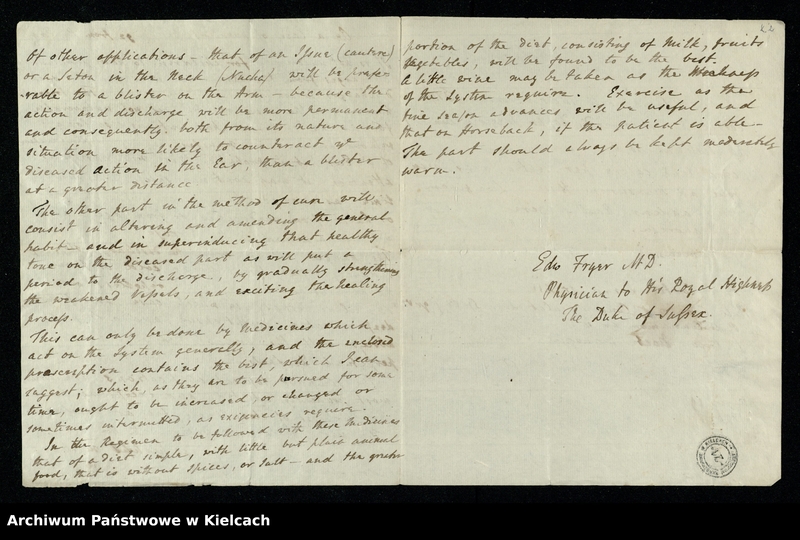 Of other applications – that of an Issue (cautere)
or a Seton in the Neck (Nucha) will be prefe-
-rable to a blister on the Arm – because the
action and discharge will be more permanent
and consequently, both from its nature and
situation more likely to counteract ye
diseased action in the Ear, than a blister
at a greater distance
The other part in the method of cure will
consist in altering and amending the general
habit – and in superinducing that healthy
tone on the diseased part as will put a
period to the discharge, by gradually strengthening
the weakened Vessels, and exciting the healing
process.
This can only be done by Medicines which
act on the System generally, and the enclosed
prescription contains the best, which I can
suggest; which, as they are to be pursued for some
time, ought to be increased, or changed or
sometimes intermitted, as exigencies require.
In the Regimen to be followed with these Medicines
that of a diet simple, with little but plain animal
food, that is without Spices, or Salt – and the greater
portion of the diet, consisting of Milk, fruits
Vegetables, will be found to be the best.
A little wine may be taken as the Weakness
of the System require. Exercise as the
fine season advances will be useful, and
that on Horseback, if the patient is able –
The part should always be kept moderately
warm.
Edw Fryer M.D.
Physician to His Royal Highness
The Duke of Sussex.
Archiwum Państwowe w Kielcach